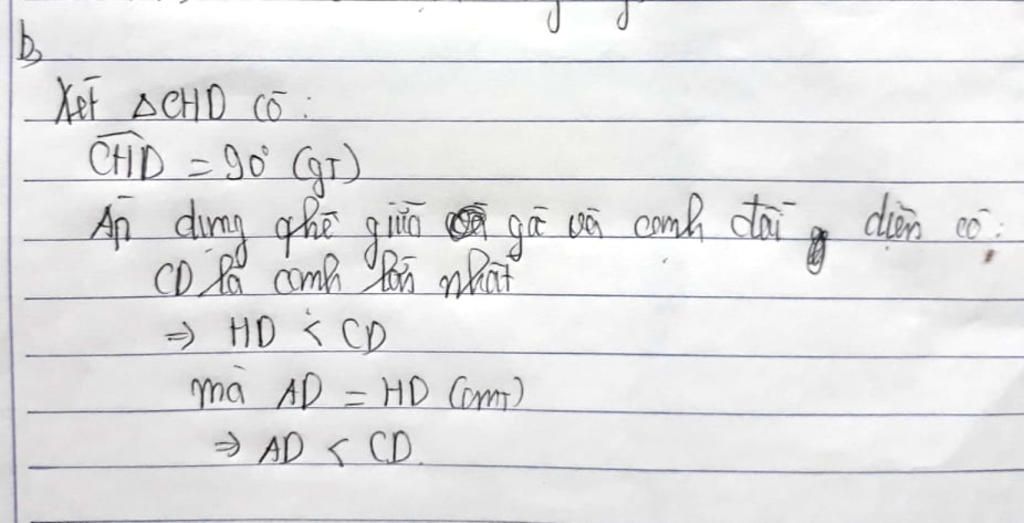 b,
Xét △CHD có:
CHD = 90° (gt)
Áp dụng qhệ giữa góc và cạnh đối diện có:
CD là cạnh lớn nhất
⇒ HD < CD
mà AD = HD (cmt)
⇒ AD < CD.